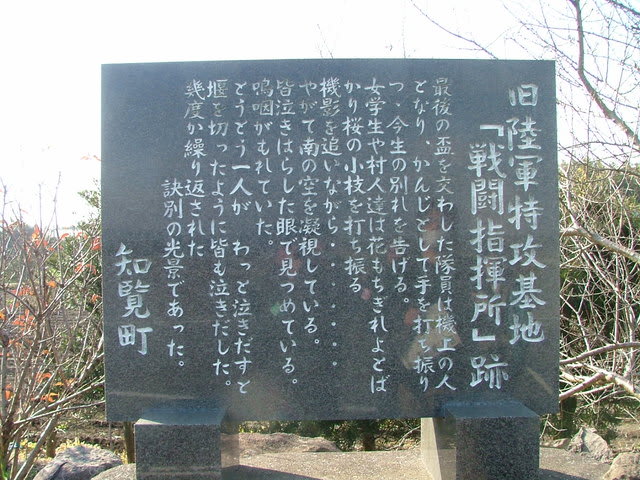 旧陸軍特攻基地
「戦闘指揮所」跡
最後の盃を交わした隊員は機上の人
となり、かんじとして手を打ち振り
つゝ今生の別れを告げる。
女学生や村人達は花もちぎれよとば
かり桜の小枝を打ち振る
機影を追いながら・・・・・・・
やがて南の空を凝視している。
皆泣きはらした眼で見つめている。
嗚咽がもれていた。
とうとう一人が わっと泣きだすと
堰を切ったように皆も泣きだした。
幾度か繰り返された
訣別の光景であった。
知覧町